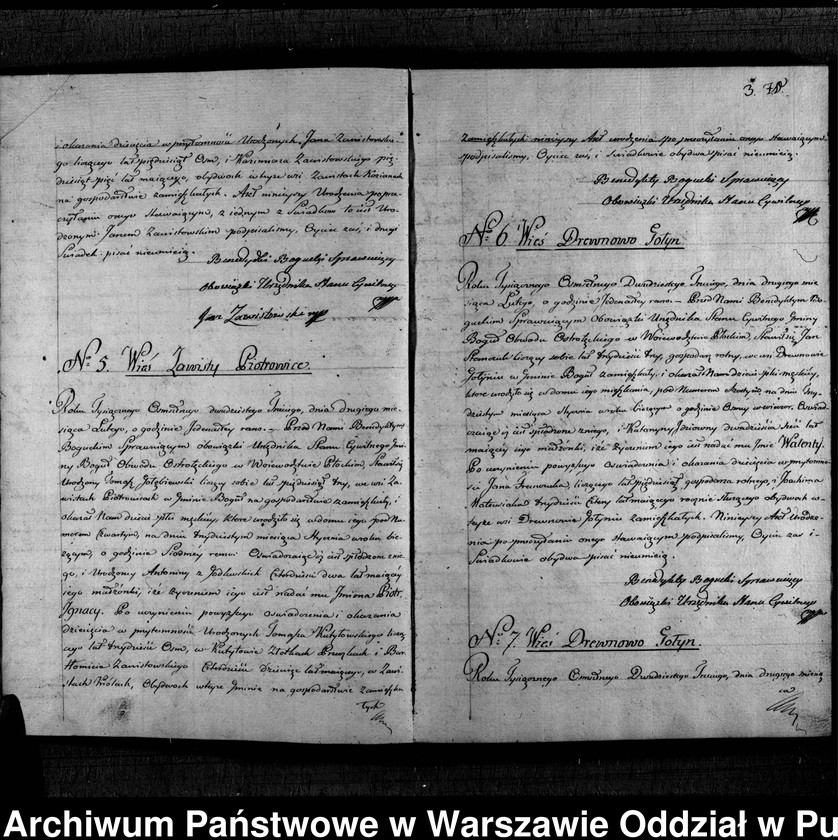 i okazania dziecięcia w przytomności Urodzonych, Jana Zawistowskie-
go liczącego lat pięćdziesiąt Osm, i Kazimierza Zawistowskiego pię-
dziesiąt pięć lat mającego, obydwóch w tejże wsi Zawistach
na gospodarstwie zamieszkałych. Akt niniejszy Urodzenia po prze-
czytaniu onego Stawającym, z jednym z Świadków to jest Uro-
dzonym Janem Zawistowskim podpisaliśmy, Ojciec zaś i drugi
Świadek pisać nieumieją.
Benedykt Bogucki Sprawujący
Obowiązki Urzędnika Stanu Cywilnego
Jan Zawistowski
No. 5. Wieś Zawisty Piotrowice.
Roku Tysiącznego Ośmsetnego dwudziestego Trzeciego, dnia drugiego mie-
siąca Lutego, o godzinie Jedenastey rano. – Przed Nami Benedyktem
Boguckim Sprawującym obowiązki Urzędnika Stanu Cywilnego Gmi-
ny Boguł Obwodu Ostrołęckiego w Woiewództwie Płockim, Stawił się
Urodzony Tomasz Gołębiewski liczący sobie lat pięćdziesiąt Trzy, we wsi Za-
wistach Piotrowicach w Gminie Boguł na gospodarstwie zamieszkały, i
okazał Nam dziecie płci męzkiej, które urodziło się w domu iego pod Nu-
merem Czwartym, na dniu trzydziestym miesiąca Stycznia w roku bie-
żącym, o godzinie Siodmey rano. Oświadczając iż iest spłodzone z nie-
go, i Urodzoney Antoniny z Godlewskich Czterdzieści dwa lat mającey
iego małżonki, i że życzeniem iego iest nadać mu Imiona Piotr,
Ignacy. Po uczynieniu powyższego oświadczenia i okazania
dziecięcia w przytomności Urodzonych Tomasza Kutyłowskiego liczą-
cego lat trzydzieści Osm, w Kutyłowie Złotkach i Bar-
tłomieia Zawistowskiego Czterdzieści Dziewięć lat mającego, w Zawi-
stach Królach, Obydwóch w tejże Gminie na gospodarstwie zamieszka-
łych
3.
zamieszkałych niniejszy Akt urodzenia po przeczytaniu onego stawającym
podpisaliśmy, Ojciec zaś, i Świadkowie obydwa pisać nieumieją.
Benedykt Bogucki Sprawujący
Obowiązki Urzędnika Stanu Cywilnego
No. 6 Wieś Drewnowo Gołyn
Roku Tysiącznego Ośmsetnego Dwudziestego Trzeciego, dnia drugiego mie-
siąca Lutego, o godzinie Jedenastey rano. – Przed Nami Benedyktem Bo-
guckim Sprawującym Obowiązki Urzędnika Stanu Cywilnego Gminy
Boguł Obwodu Ostrołęckiego w Woiewództwie Płockim, Stawił się Jan
liczący sobie lat trzydzieści trzy, gospodarz rolny, we wsi Drewnowie
Gołyniu w Gminie Boguł zamieszkały, i okazał Nam dziecie płci męzkiej,
które urodziło się w domu iego mieszkania, pod Numerem na dniu trzy-
dziestym miesiąca Stycznia w roku bieżącym o godzinie Osmey wieczor. Oświad-
czając iż iest spłodzone z niego, i Katarzyny dwadzieścia Sześć lat
mającey iego małżonki, i że życzeniem iego iest nadać mu Imie Walenty.
Po uczynieniu powyższego oświadczenia i okazania dziecięcia w przytomno-
ści Jana liczącego lat pięćdziesiąt, gospodarza rolnego, i Joachima
Makowskiego trzydzieści Cztery lat mającego rocznie służącego obydwóch w
tejże wsi Drewnowie Gołyniu zamieszkałych. Niniejszy Akt Urodze-
nia po przeczytaniu onego stawającym podpisaliśmy, Ojciec zaś i
Świadkowie obydwa pisać nieumieją.
Benedykt Bogucki Sprawujący
Obowiązki Urzędnika Stanu Cywilnego
No. 7. Wieś Drewnowo Gołyn.
Roku Tysiącznego Ośmsetnego Dwudziestego Trzeciego, dnia drugiego miesią-
ca
Archiwum Państwowe w Warszawie Oddział w Pu